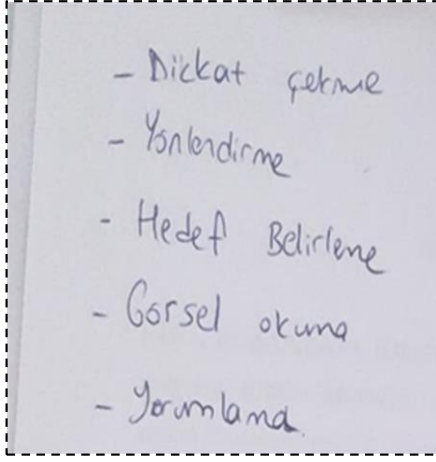 - Dikkat çekme
- Yönlendirme
- Hedef Belirleme
- Görsel okuma
- Yorumlama